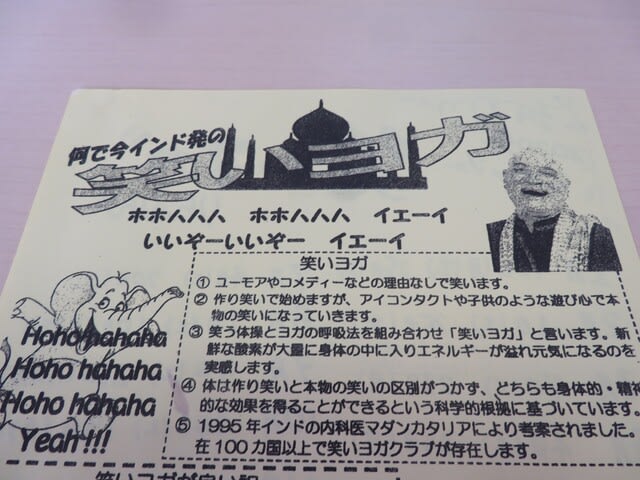 何で今インド発の
笑いヨガ
ホホハハハ ホホハハハ イエーイ
いいぞーいいぞー イエーイ
笑いヨガ
① ユーモアやコメディーなどの理由なしで笑います。
② 作り笑いで始めますが、アイコンタクトや子供のような遊び心で本
物の笑いになっていきます。
③ 笑う体操とヨガの呼吸法を組み合わせ「笑いヨガ」と言います。新
鮮な酸素が大量に身体の中に入りエネルギーが溢れ元気になるのを
実感します。
④ 体は作り笑いと本物の笑いの区別がつかず、どちらも身体的・精神
的な効果を得ることができるという科学的根拠に基づいています。
⑤ 1995年インドの内科医マダンカタリアにより考案されました。
在100カ国以上で笑いヨガクラブが存在します。
Hoho hahaha
Hoho hahaha
Hoho hahaha
Yeah!!!
笑いヨガが良い訳